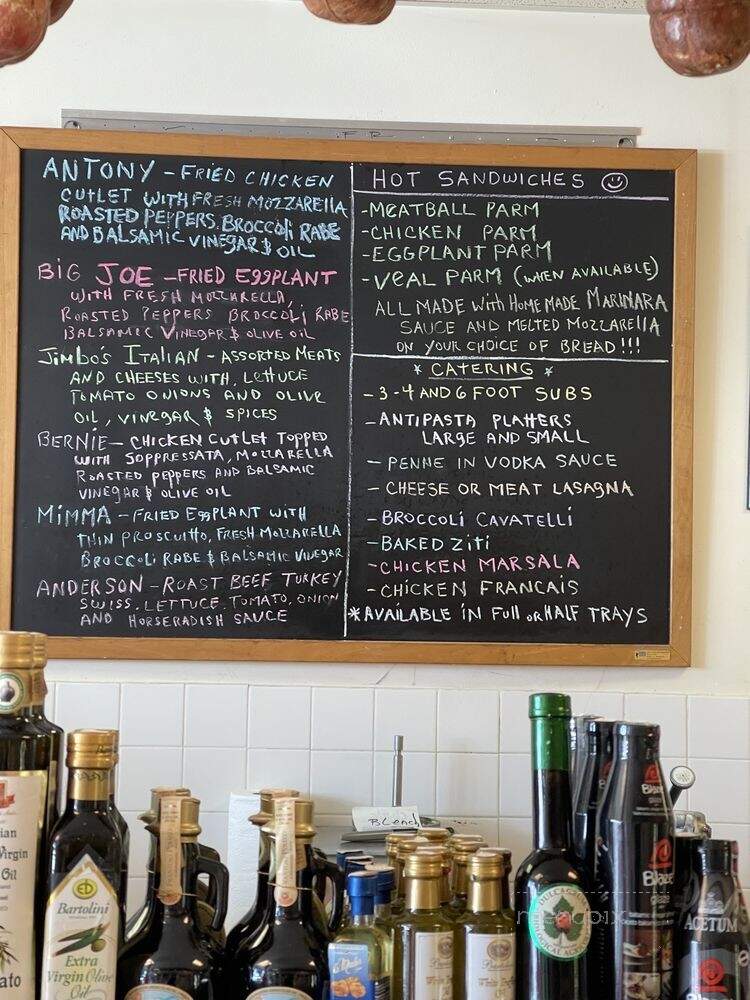 ANTONY - FRIED CHICKEN
CUTLET WITH FRESH MOZZARELLA
ROASTED PEPPERS. BROCCOLI RABE
AND BALSAMIC VINEGAR & OIL
BIG JOE - FRIED EGGPLANT
WITH FRESH MOZZARELLA,
ROASTED PEPPERS BROCCOLI RABE
BALSAMIC VINEGAR & OLIVE OIL
JIMBO'S ITALIAN - ASSORTED MEATS
AND CHEESES WITH, LETTUCE
TOMATO ONIONS AND OLIVE
OIL, VINEGAR & SPICES
BERNIE - CHICKEN CUTLET TOPPED
WITH SOPPRESSATA, MOZZARELLA
ROASTED PEPPERS AND BALSAMIC
VINEGAR & OLIVE OIL
MIMMA - FRIED EGGPLANT WITH
THIN PROSCUITTO, FRESH MOZZARELLA
BROCCOLI RABE & BALSAMIC VINEGAR
ANDERSON - ROAST BEEF TURKEY
SWISS, LETTUCE, TOMATO, ONION
AND HORSERADISH SAUCE
HOT SANDWICHES ☺
-MEATBALL PARM
-CHICKEN PARM
-EGGPLANT PARM
-VEAL PARM (WHEN AVAILABLE)
ALL MADE WITH HOMEMADE MARINARA
SAUCE AND MELTED MOZZARELLA
ON YOUR CHOICE OF BREAD!!!
* CATERING *
-3-4 AND 6 FOOT SUBS
-ANTIPASTA PLATTERS
LARGE AND SMALL
-PENNE IN VODKA SAUCE
-CHEESE OR MEAT LASAGNA
-BROCCOLI CAVATELLI
-BAKED ZITI
-CHICKEN MARSALA
-CHICKEN FRANCAIS
*AVAILABLE IN FULL OR HALF TRAYS
BLENd
Bartolini
Extra
Virgin Olive
Oil
Virgin
Oil
Blaze
glaze
ACETUM
menupix